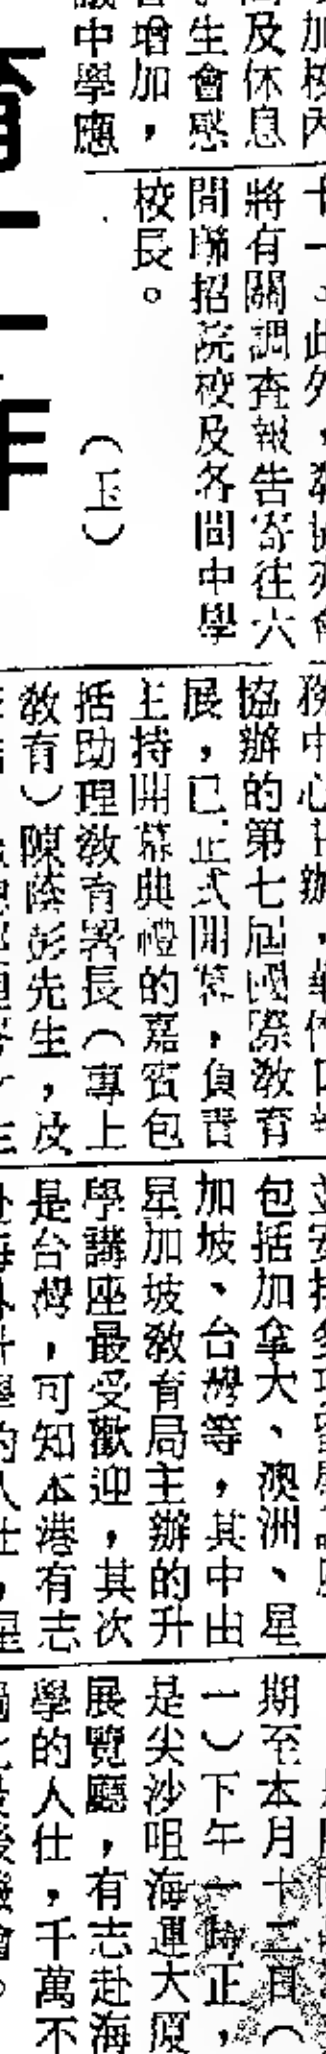 加校內
及休息
生會感
增加，
中學應
十一、此外，教協亦會
將有關調查報告寄往六
間聯招院校及各間中學
校長。
（玉）
務中心主辦，華僑日報
協辦的第七屆國際教育
展，已正式開幕，負責
主持開幕典禮的嘉賓包
括助理教育署長（專上
教育）陳蔭彭先生，及
包括加拿大、澳洲、星
加坡、台灣等，其中由
星加坡教育局主辦的升
學講座最受歡迎，其次
是台灣，可知本港有志
赴海外升學的人仕，星
期至本月十二日（
一）下午一時正，
是尖沙咀海運大廈
展覽廳，有志赴海
學的人仕，千萬不
最後機會。